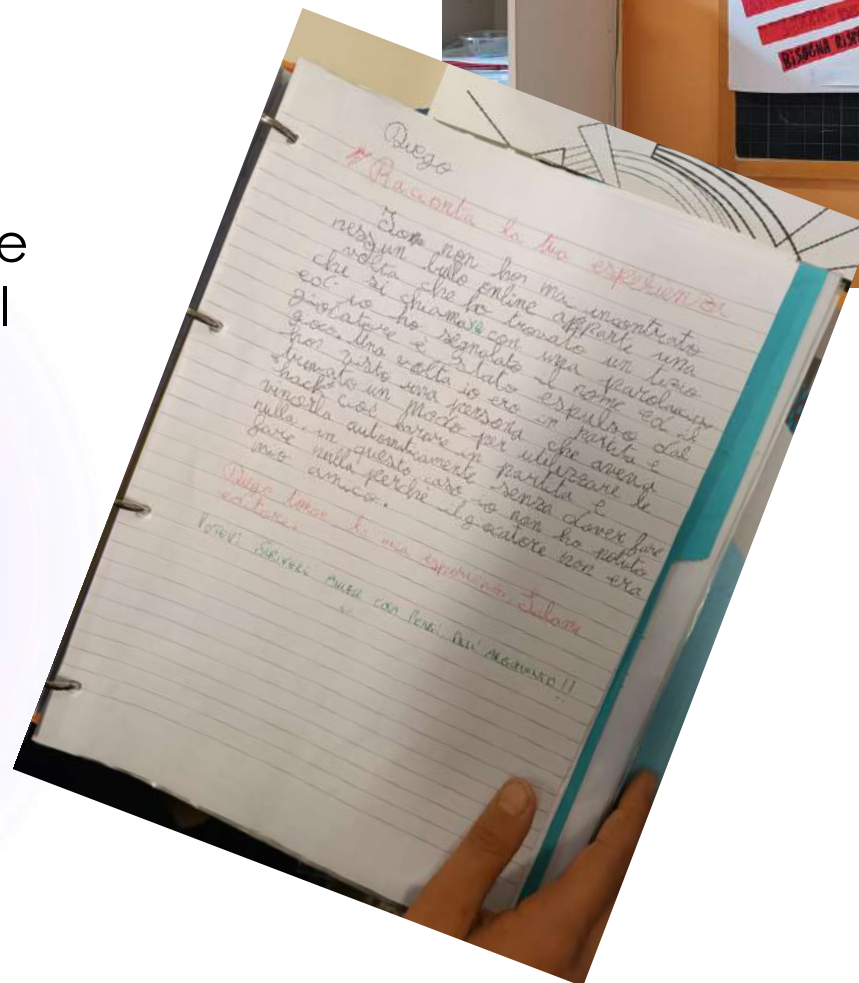 e
l
BISOGNA RISP
Diego
Racconta la tua esperienza
Io non ho mai incontrato
nessun bullo online apparte una
volta che ho trovato un tizio
che si chiamava con una parolaccia
ed io ho segnalato il nome ed il
giocatore è estato espulso dal
gioco. Una volta io ero in partita e
ho visto una persona che aveva
trovato un modo per utilizzare le
hack così barare in partita e
vincerla automaticamente senza dover fare
nulla, in questo caso io non ho potuto
fare nulla perché il giocatore non era
mio amico.
Diego la mia esperienza
POTEVI SCRIVERE ANCHE COSA PENSI DELL' ARGOMENTO!!